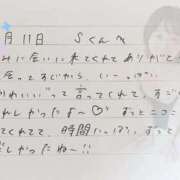 月11日 Sくんへ
みに会いに来てくれてありがと
会ってすごから、いーっぱい
かわいい"って言ってくれて、すごい
れしかったよ〜♡ずっとニコニ
てくれてて、時間いっぱい、ずっと
しかったね〜!!